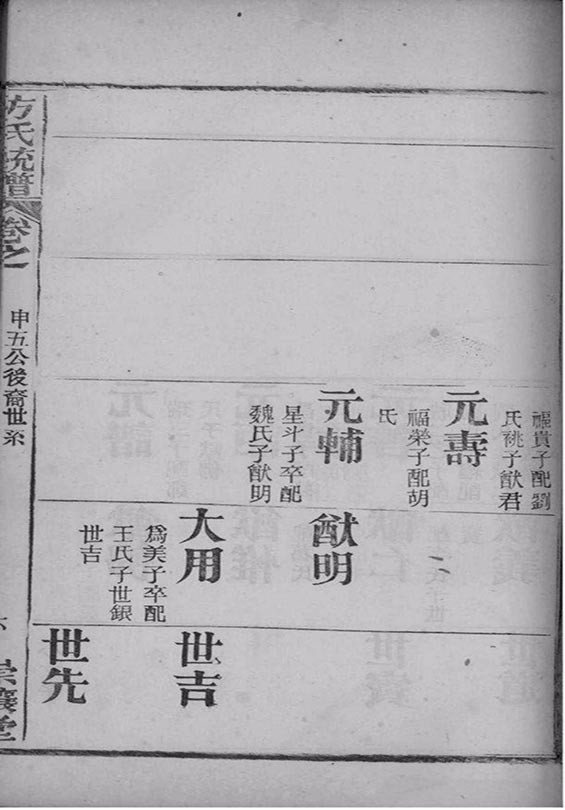 福貴子配劉
氏祧子猷君
元壽
福榮子配胡
氏
元輔
星斗子卒配
魏氏子猷明
猷明
大用
爲美子卒配
王氏子世銀
世吉
世吉
世先
方氏統譜
卷之
申五公後裔世系